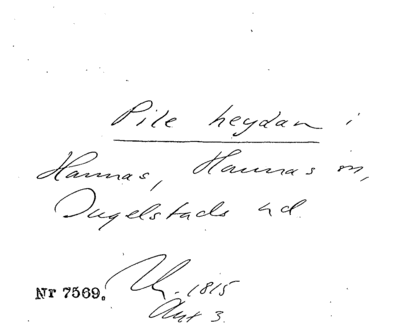 Pile heydan i
Hannas, Hannas sn,
Ingelstads hd
Nr 7569.
1815
Akt 3.